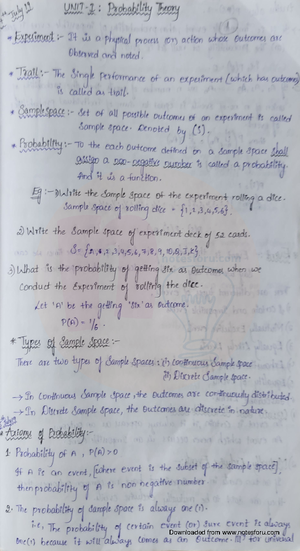 July 11
UNIT-I : Probability Theory
* Experiment :- It is a physical process (or) action whose outcomes are
observed and noted.
* Trail :- The Single performance of an experiment (which has outcomes)
is called as trail.
* Sample space :- Set of all possible outcomes of an experiment is called
Sample space. Denoted by (S).
* Probability :- To the each outcome defined on a sample space shall
assign a non-negative number is called a probability
And it is a function.
Eg :- 1) Write the Sample space of the experiment rolling a dice.
Sample space of rolling dice = {1,2,3,4,5,6}.
2) Write the Sample space of experiment deck of 52 cards.
3) What is the probability of getting six as Outcome, when we
Conduct the Experiment of rolling the dice.
Let 'A' be the getting 'six' as outcome.
P(A) = 1/6.
* Types of Sample Space :-
There are two types of Sample Spaces : i) Continuous Sample space
ii) Discrete Sample space.
→ In Continuous Sample space, the Outcomes are continuously distributed.
→ In Discrete Sample space, the Outcomes are discrete in nature.
Axioms of Probability :-
1. Probability of A , P(A)>0
If A is an event, [where event is the subset of the sample space]
then probability of A is non negative number
2. The probability of sample space is always one (1).
i.e., The probability of certain event (or) sure event is always
one(1) because it will always comes as an outcome.
Downloaded from www.notesforu.com